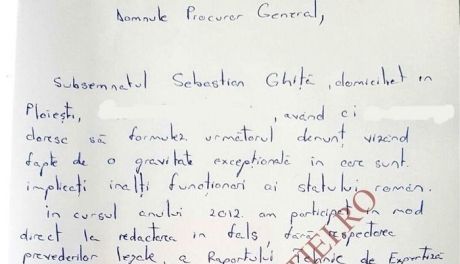 Domnule Procuror General,
Subsemnatul Sebastian Ghiță, domiciliat în
Ploiești, , având ci
doresc să formulez următorul denunț vizând
fapte de o gravitate excepțională în care sunt
implicați înalți funcționari ai statului român.
În cursul anului 2012 am participat în mod
direct la redactarea în fals, fără respectarea
prevederilor legale, a Raportului de Expertiză